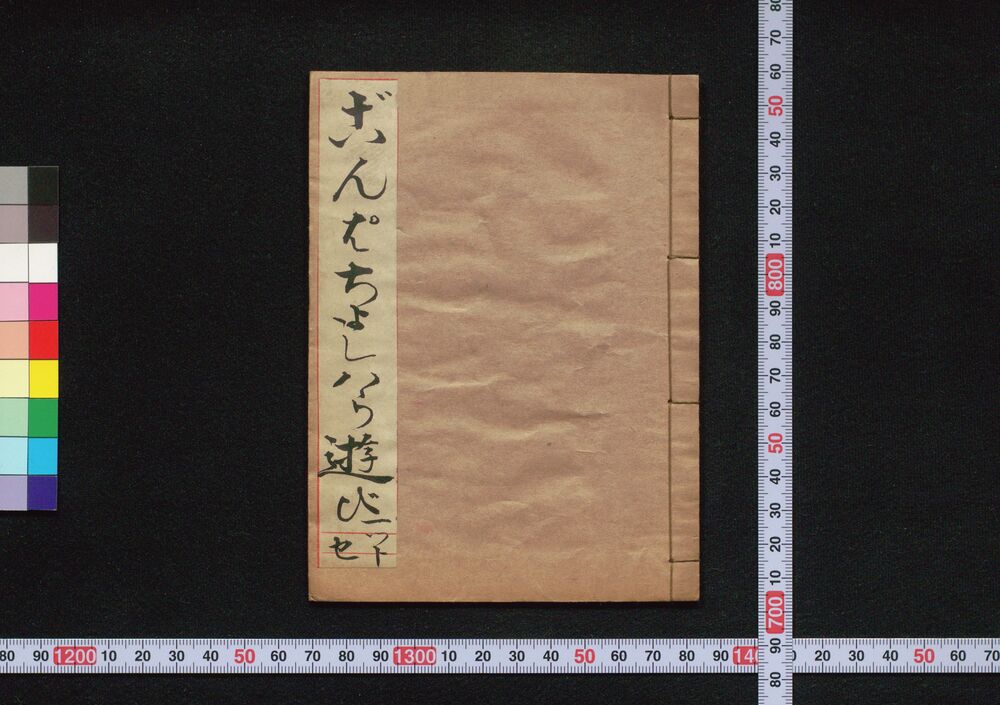 ざんぱちよしハら遊び一ツトセ
80 70 60 50 40 30 20 10 800 90 80 70 60 50 40 30 20 10 700 90 80
80 90 1200 10 20 30 40 50 60 70 80 90 1300 10 20 30 40 50 60 70 80 90 20 30 40 50 60 70